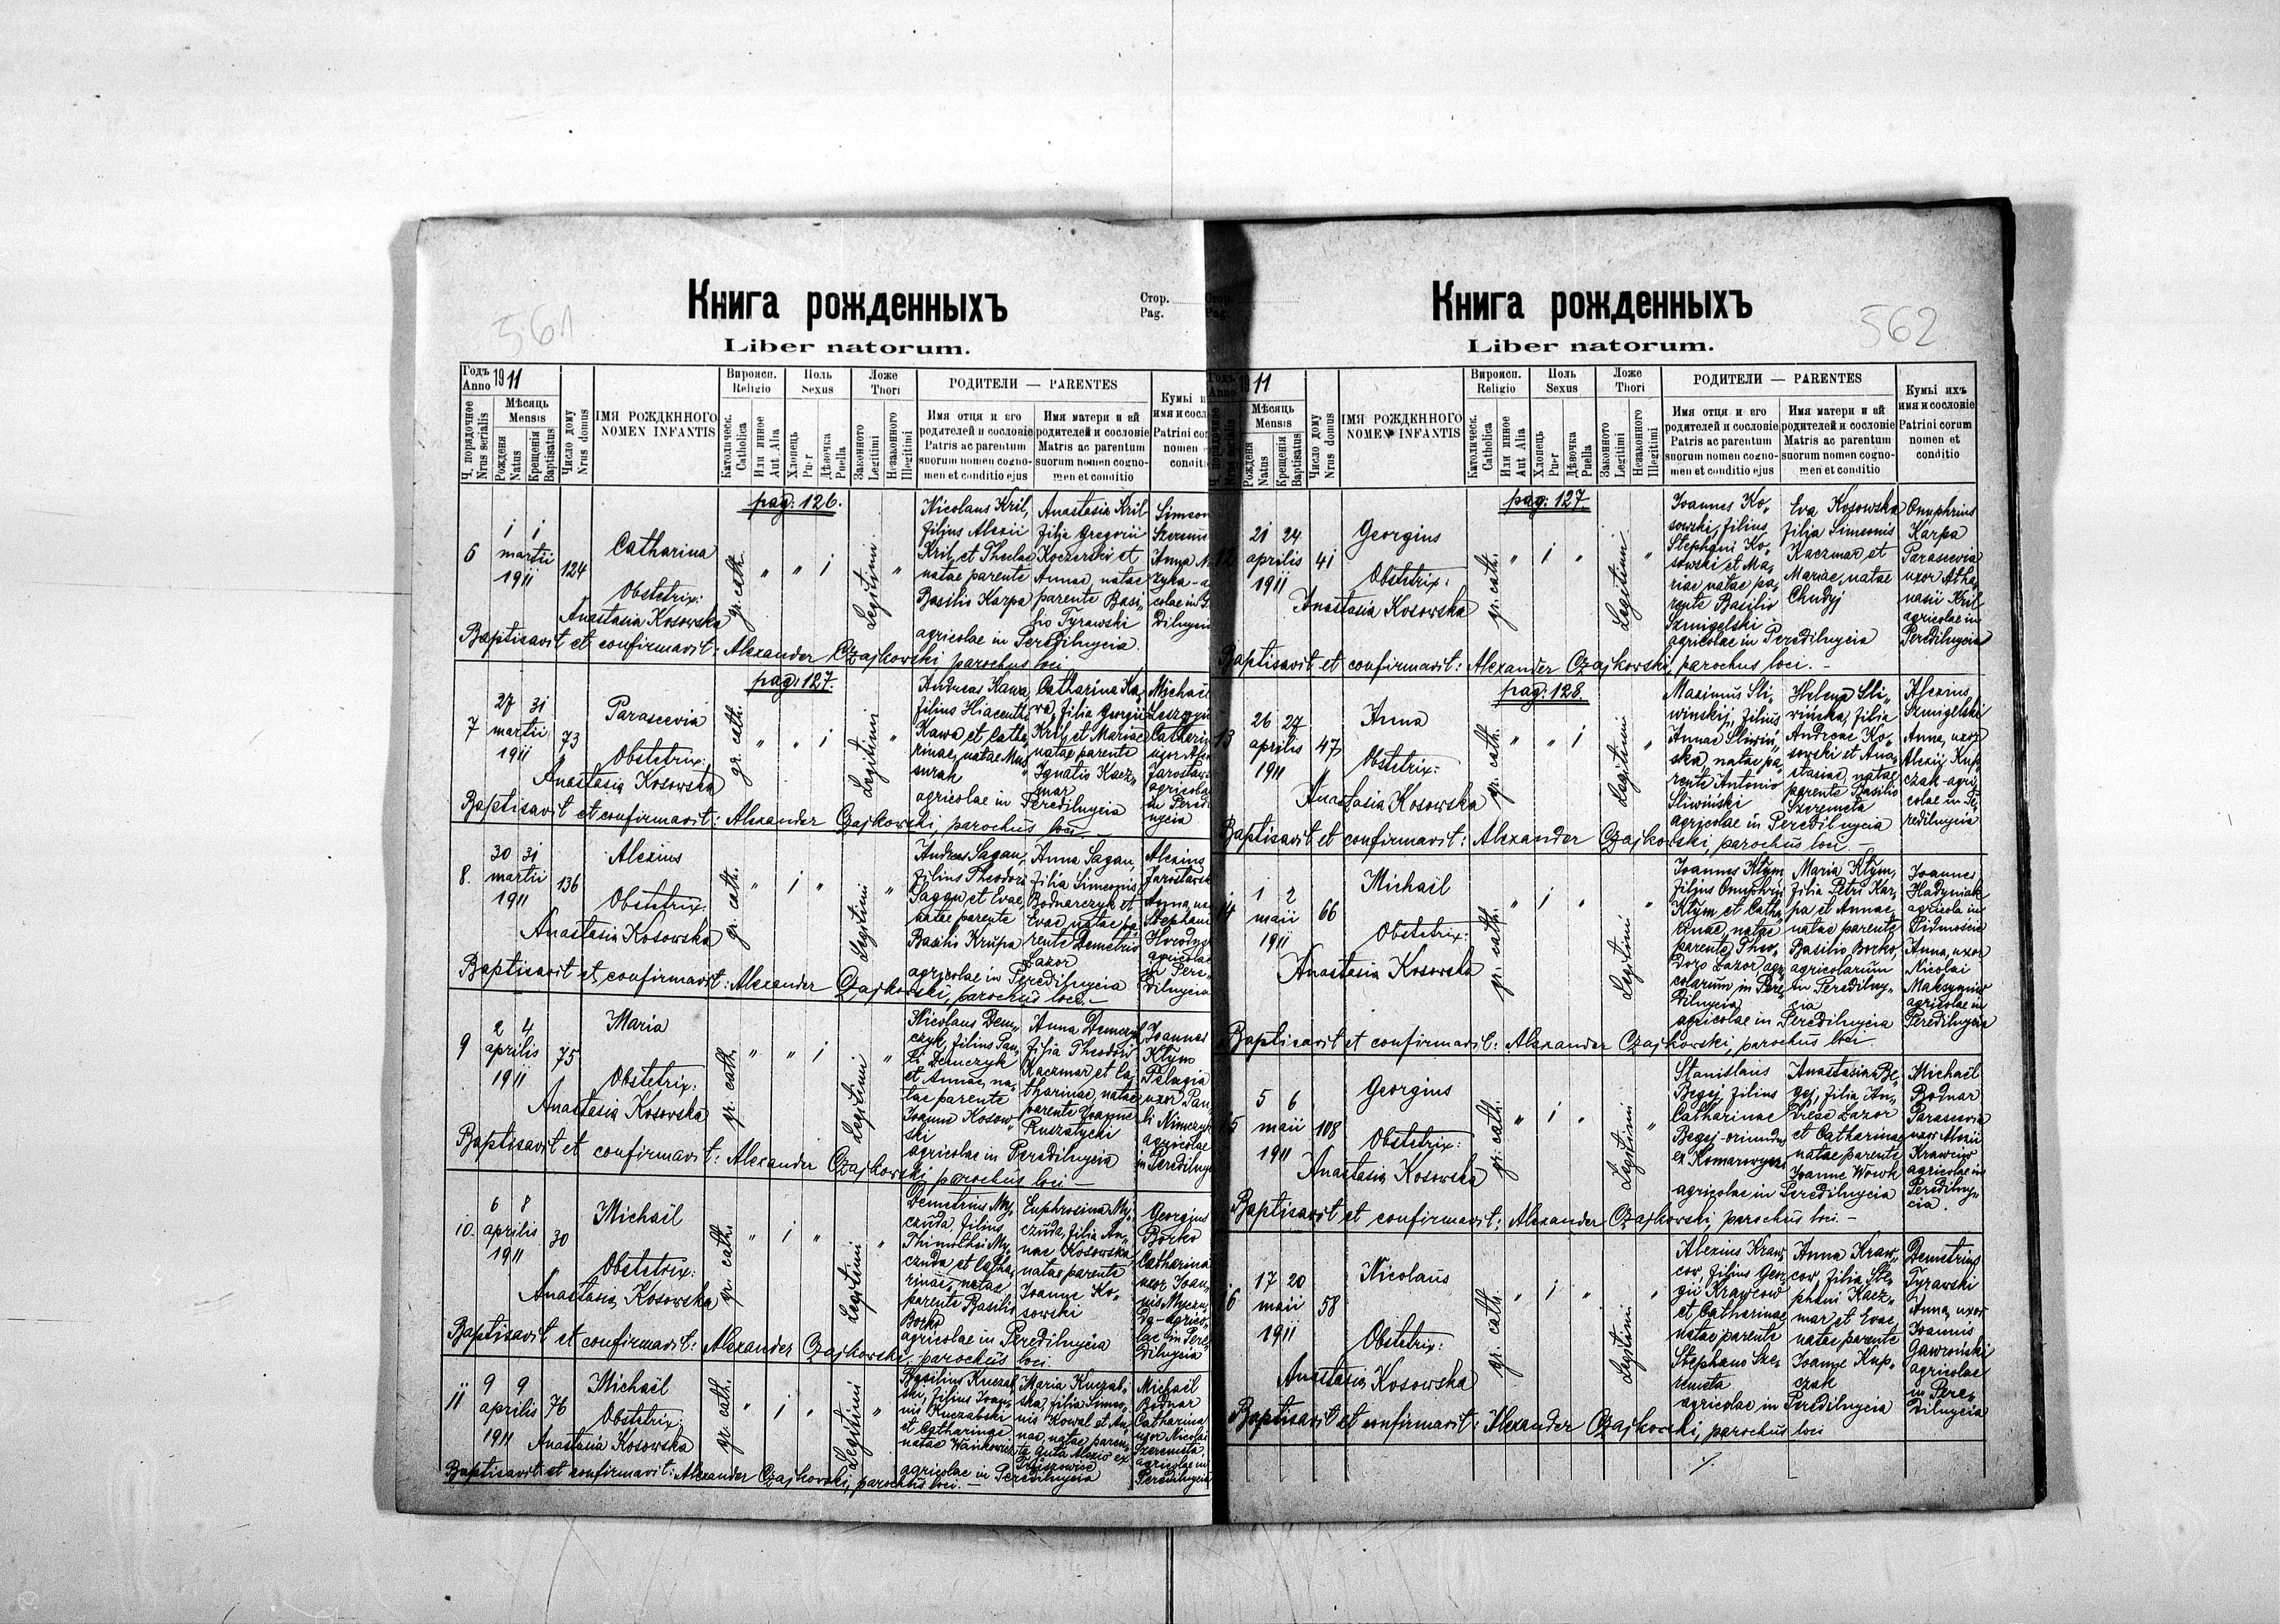 Книга рожденныхъ
Стор.
Pag.
561
Liber natorum.
Годъ
Anno 1911
Ч. порядочное
Nrus serialis
Мѣсяць
Mensis
Рожденя
Natus
Крещенія
Baptisatus
Число дому
Nrus domus
ІМЯ РОЖДЕННОГО
NOMEN INFANTIS
Вироисп.
Religio
Католическ.
Catholica
Или инное
Aut Alia
Поль
Sexus
Хлопець
Puer
Дѣвочка
Puella
Ложе
Thori
Законного
Legitimi
Незаконного
Illegitimi
РОДИТЕЛИ — PARENTES
Имя отця и его
родителей и сословіе
Patris ac parentum
suorum nomen cogno-
men et conditio ejus
Имя матери и ей
родителей и сословіе
Matris ac parentum
suorum nomen cogno-
men et conditio
Кумы
Patrini
nomen
pag: 126.
6
1 1
martii
1911
124
Catharina
Obstetrix:
Anastasia Kosowska
gr. cath.
" " 1
Legitimi
"
Nicolaus Kril,
filius Alexii
Kril, et Theclae
natae parente
Basilio Karpa
Anastasia Kril
filia Gregorii
Koczerski et
Annae, natae
parente Basi„
lio Tyrawski
agricolae in Peredilnycia.
Simeon
Anna
Baptisavit et confirmavit: Alexander Czajkowski, parochus loci
pag: 127.
7
27 31
martii
1911
73
Parascevia
Obstetrix:
Anastasia Kosowska
gr. cath.
" " 1
Legitimi
"
Andreas Kawa,
filius Hiacenthi
Kawa et Catha„
rinae, natae Mu„
surak
Catharina Ka„
wa, filia Georgii
Kril, et Mariae
natae parente
Ignatio Kacz„
mar
agricolae in Peredilnycia
Michaël
Baptisavit et confirmavit: Alexander Czajkowski, parochus loci —
8.
30 31
martii
1911
136
Alexius
Obstetrix
Anastasia Kosowska
gr. cath.
" 1 "
Legitimi
"
Andreas Sagan,
filius Theodori
Sagan et Evae,
natae parente
Basilio Krupa
Anna Sagan,
filia Simeonis
Bodnarczyk et
Evae, natae pa„
rente Demetrio
Lazor
agricolae in Peredilnycia
Alexius
Anna, uxor
Stephani
agricolae
in Pere„
dilnycia
Baptisavit et confirmavit: Alexander Czajkowski, parochus loci.—
9
2 4
aprilis
1911
75
Maria
Obstetrix:
Anastasia Kosowska
gr. cath.
" " 1
Legitimi
"
Nicolaus Dem„
czyk, filius Pau„
li Demczyk
et Annae, na„
tae parente
Ioanne Kosow„
ski
Anna Demczyk
filia Theodori
Kaczmar et Ca„
tharinae, natae
parente Ioanne
Ruszatycki
agricolae in Peredilnycia
Joannes
Klym
Pelagia
uxor Pau„
li Nimczyk
agricolae
Baptisavit et confirmavit: Alexander Czajkowski, parochus loci —
10.
6 8
aprilis
1911
30
Michaël
Obstetrix:
Anastasia Kosowska
gr. cath.
" 1 "
Legitimi
"
Demetrius My„
czuda filius
Thimothei My„
czuda et Catha„
rinae, natae
parente Basilio
Borko
Euphrosina My„
czuda, filia An„
nae Kosowska,
natae parente
Ioanne Ko„
sowski
agricolae in Peredilnycia
Georgius
Borko
Catharina
uxor Ioan„
nis Myczu„
da - agrico„
lae in Pere„
dilnycia
Baptisavit et confirmavit: Alexander Czajkowski, parochus loci.
11
9 9
aprilis
1911
76
Michaël
Obstetrix:
Anastasia Kosowska
gr. cath.
" 1 "
Legitimi
"
Basilius Kuczab„
ski, filius Ioan„
nis Kuczabski
et Catharinae
natae Wańkowicz
Maria Kuczab„
ska, filia Simeo„
nis Kowal et An„
nae, natae paren„
agricolae in Peredilnycia
Michaël
Bodnar
Catharina
uxor Nicolai
Szeremeta
agricolae in
Peredilnycia
Baptisavit et confirmavit: Alexander Czajkowski, parochus loci. —
Книга рожденныхъ
562
Liber natorum.
1911
Мѣсяць
Mensis
Рожденя
Natus
Крещенія
Baptisatus
Число дому
Nrus domus
ІМЯ РОЖДЕННОГО
NOMEN INFANTIS
Вироисп.
Religio
Католическ.
Catholica
Или инное
Aut Alia
Поль
Sexus
Хлопець
Puer
Дѣвочка
Puella
Ложе
Thori
Законного
Legitimi
Незаконного
Illegitimi
РОДИТЕЛИ — PARENTES
Имя отця и его
родителей и сословіе
Patris ac parentum
suorum nomen cogno-
men et conditio ejus
Имя матери и ей
родителей и сословіе
Matris ac parentum
suorum nomen cogno-
men et conditio
Кумы ихъ
имя и сословіе
Patrini corum
nomen et
conditio
pag: 127.
12
21 24
aprilis
1911
41
Georgius
Obstetrix:
Anastasia Kosowska
gr. cath.
" 1 "
Legitimi
"
Ioannes Ko„
sowski, filius
Stephani Ko„
sowski et Ma„
riae natae pa„
rente Basilio
Szmigelski
Eva Kosowska
filia Simeonis
Kaczmar et
Mariae, natae
Chudyj
agricolae in Peredilnycia
Onuphrius
Karpa
Parascevia
uxor Atha„
nasii Kril
agricolae in
Peredilnycia
Baptisavit et confirmavit: Alexander Czajkowski, parochus loci. —
pag: 128.
13
26 27
aprilis
1911
47
Anna
Obstetrix:
Anastasia Kosowska
gr. cath.
" " 1
Legitimi
"
Maximus Sli„
winskij, filius
Annae Sliwiń„
ska, natae pa„
rente Antonio
Sliwiński
Helena Sli„
wińska, filia
Andreae Ko„
sowski et Ana„
stasiae, natae
parente Basilio
Szeremeta
agricolae in Peredilnycia
Alexius
Szmigelski
Anna, uxor
Alexii Kup„
czak - agri„
colae in Pe„
redilnycia
Baptisavit et confirmavit: Alexander Czajkowski, parochus loci. —
14
1 2
maii
1911
66
Michaël
Obstetrix:
Anastasia Kosowska
gr. cath.
" 1 "
Legitimi
"
Ioannes Klym
filius Onuphrii
Klym et Catha„
rinae, natae
parente Theo„
doro Lazor agri„
colarum in Pere„
dilnycia
Maria Klym,
filia Petri Kar„
pa et Annae,
natae parente
Basilio Borko,
agricolarum
in Peredilny„
cia
agricolae in Peredilnycia
Ioannes
Hadyniak
agricola in
Anna, uxor
Nicolai
Maksymiw
agricolae in
Peredilnycia
Baptisavit et confirmavit: Alexander Czajkowski, parochus loci.
15
5 6
maii
1911
108
Georgius
Obstetrix:
Anastasia Kosowska
gr. cath.
" 1 "
Legitimi
"
Stanislaus
Begej, filius
Catharinae
Begej - oriundus
ex Komarowycz
Anastasia Be„
gej, filia An„
dreae Lazor
et Catharinae
natae parente
Ioanne Wowk
agricolae in Peredilnycia
Michaël
Bodnar
Parascevia
uxor Alexii
Krawciw
agricolae in
Peredilny„
cia.
Baptisavit et confirmavit: Alexander Czajkowski, parochus loci. —
16
17 20
maii
1911
58
Nicolaus
Obstetrix:
Anastasia Kosowska
gr. cath.
" 1 "
Legitimi
"
Alexius Kraw„
cow, filius Geor„
gii Krawcow
et Catharinae
natae parente
Stephano Sze„
remeta
Anna Kraw„
cow, filia Ste„
phani Kacz„
mar et Evae,
natae parente
Ioanne Kup„
czak
agricolae in Peredilnycia
Demetrius
Tyrawski
Anna, uxor
Ioannis
Gawroński
agricolae
in Pere„
dilnycia
Baptisavit et confirmavit: Alexander Czajkowski, parochus loci